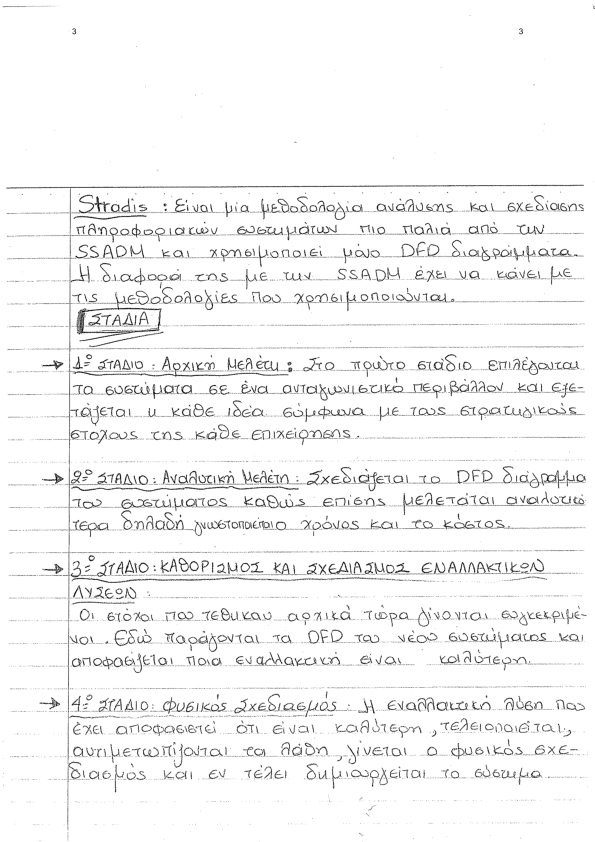 3 3
Stradis : Είναι μία μεθοδολογία ανάλυσης και σχεδίασης
πληροφοριακών συστημάτων πιο παλιά από την
SSADM και χρησιμοποιεί μόνο DFD διαγράμματα.
Η διαφορά της με την SSADM έχει να κάνει με
τις μεθοδολογίες που χρησιμοποιούνται.
ΣΤΑΔΙΑ
→ 1ο ΣΤΑΔΙΟ : Αρχική Μελέτη : Στο πρώτο στάδιο επιλέγονται
τα συστήματα σε ένα ανταγωνιστικό περιβάλλον και εξε-
τάζεται η κάθε ιδέα σύμφωνα με τους στρατηγικούς
στόχους της κάθε επιχείρησης.
→ 2ο ΣΤΑΔΙΟ : Αναλυτική Μελέτη : Σχεδιάζεται το DFD διάγραμμα
του συστήματος καθώς επίσης μελετάται αναλυτικό
τερα δηλαδή γνωστοποιείται ο χρόνος και το κόστος.
→ 3ο ΣΤΑΔΙΟ : ΚΑΘΟΡΙΣΜΟΣ ΚΑΙ ΣΧΕΔΙΑΣΜΟΣ ΕΝΑΛΛΑΚΤΙΚΩΝ
ΛΥΣΕΩΝ :
Οι στόχοι που τέθηκαν αρχικά τώρα γίνονται συγκεκριμέ-
νοι. Εδώ παράγονται τα DFD του νέου συστήματος και
αποφασίζεται ποια εναλλακτική είναι καλύτερη.
→ 4ο ΣΤΑΔΙΟ : Φυσικός Σχεδιασμός : Η εναλλακτική λύση που
έχει αποφασιστεί ότι είναι καλύτερη, τελειοποιείται,
αντιμετωπίζονται τα λάθη, γίνεται ο φυσικός σχε-
διασμός και εν τέλει δημιουργείται το σύστημα.